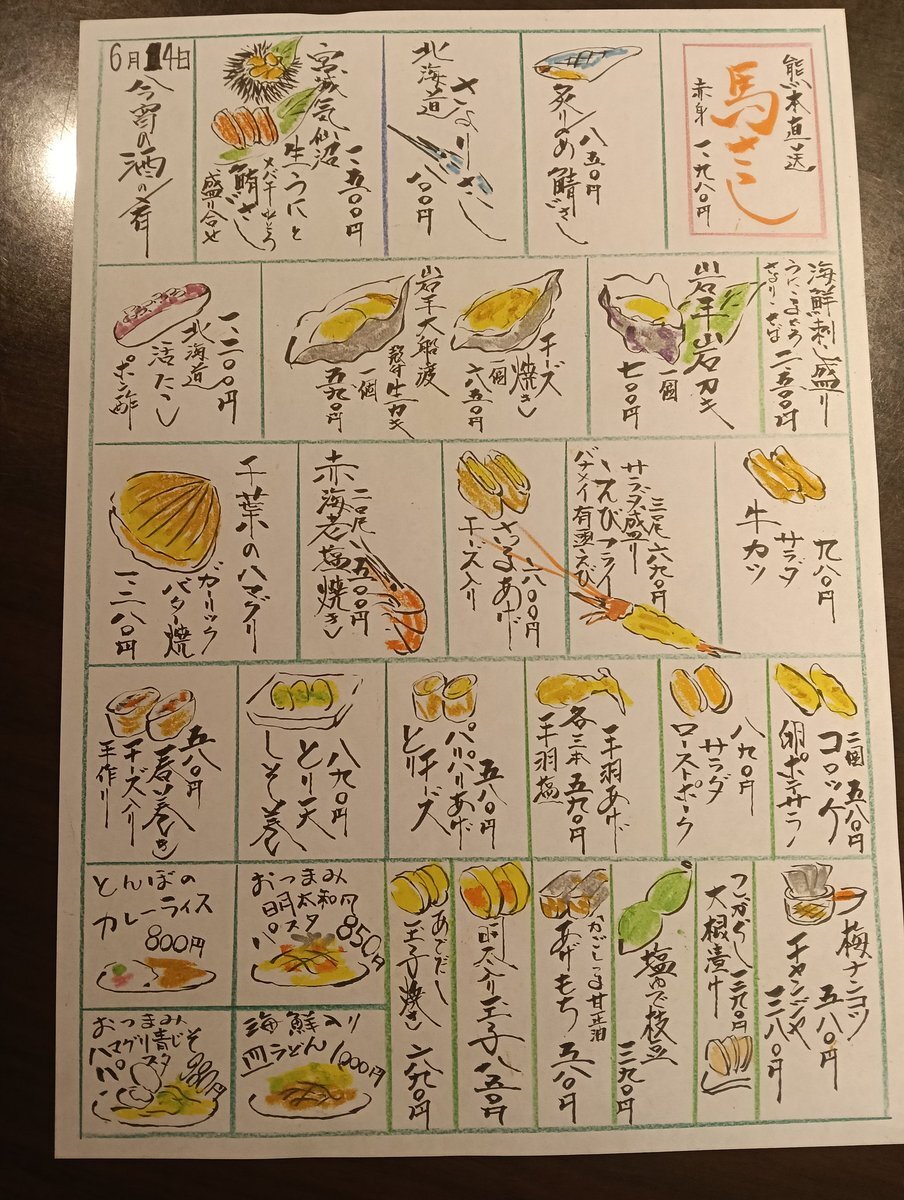 熊本直送
馬さし
赤身 一、九八〇円
八五〇円
炙りの鯖ざし
北海道
さよりさし
宮城気仙沼
一、五〇〇円
生うにと
メバチ中とろ
鮪ざし
盛り合せ
6月14日
今宵の酒の肴
海鮮刺し盛り
うに・中とろ
さより・さば
二、五〇〇円
岩手岩ガキ
一個
七〇〇円
チーズ
焼き
一個
六五〇円
岩手大船渡
生ガキ
一個
五九〇円
一、二〇〇円
北海道
活たこ
ポン酢
九八〇円
サラダ
牛カツ
三尾 六九〇円
サラダ盛り
えびフライ
バナメイ有頭えび
さつまあげ
チーズ入り
赤海老塩焼き
千葉のハマグリ
ガーリック
バター焼
一、二八〇円
二個 五八〇円
コロッケ
卵ポテサラ
八九〇円
サラダ
ローストポーク
手羽あげ
各三本 五九〇円
手羽塩
五八〇円
パリパリあげ
とりチーズ
八九〇円
とり天
しそ巻
五八〇円
春巻き
チーズ入り
手作り
梅ナンコツ
五八〇円
チャンジャ
三八〇円
つぼづくし
三九〇円
大根漬け
塩ゆで枝豆
三九〇円
かごしま甘正油
あげもち
五八〇円
明太入り玉子
八五〇円
あごだし
玉子焼き
六九〇円
おつまみ
明太和風
パスタ
850円
とんぼの
カレーライス
800円
海鮮入り
皿うどん
1000円
おつまみ
ハマグリ青じそ
パスタ
980円